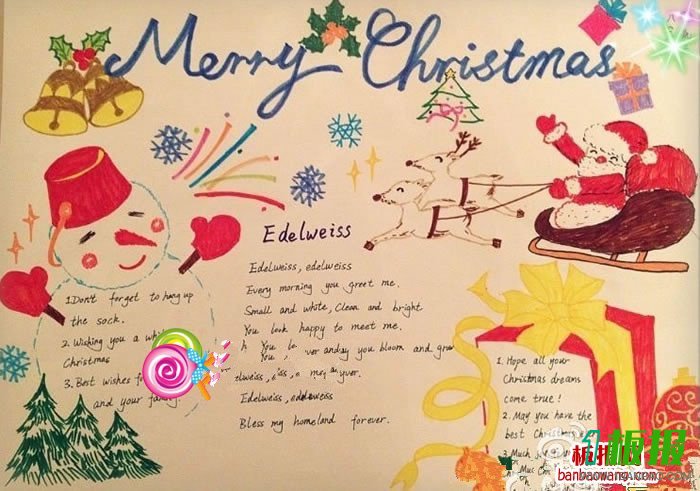 Merry Christmas
Edelweiss
Edelweiss, edelweiss
Every morning you greet me.
Small and white, Clean and bright
You look happy to meet me.
You
day you bloom and grow
Edelweiss, edelweiss
Bless my homeland forever.
1.Don't forget to hang up
the sock.
2. Wishing you a whi
Christmas
3. Best wishes fo
and your fam
1. Hope all your
Christmas dreams
come true!
2. May you have the
best Christmas
3. Much joy
板报
banbaowang.com